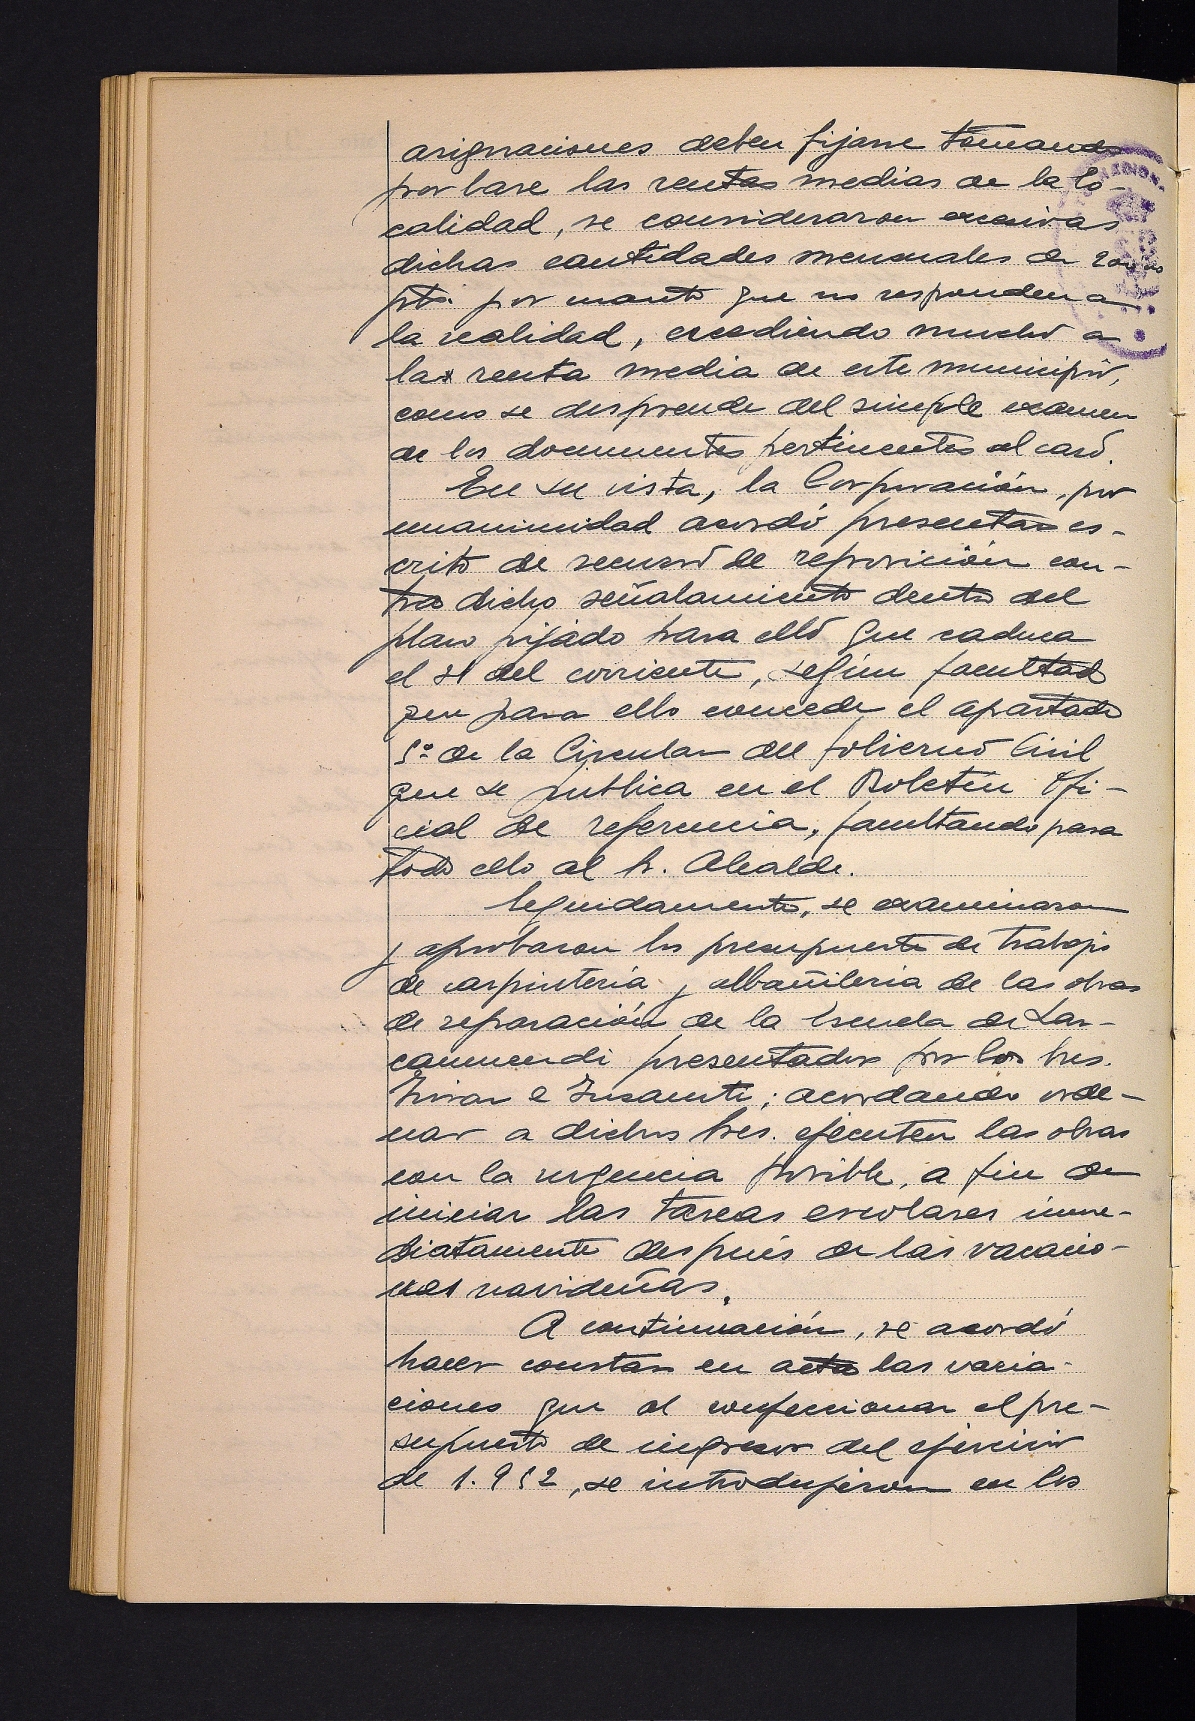 asignaciones deben fijarse tomando
por base las rentas medias de la lo-
calidad, se consideraron excesivas
dichas cantidades mensuales de 200
pts. por cuanto que no responden a
la realidad, excediendo mucho a
la renta media de este municipio,
como se desprende del simple examen
de los documentos pertinentes al caso.
En su vista, la Corporación, por
unanimidad acordó presentar es-
crito de recurso de reposición con-
tra dicho señalamiento dentro del
plazo fijado para ello que caduca
el 31 del corriente, según facultad
que para ello concede el apartado
5º de la Circular del Gobierno Civil
que se publica en el Boletín Ofi-
cial de referencia, facultando para
todo ello al Sr. Alcalde.
Seguidamente, se examinaron
y aprobaron los presupuestos de trabajo
de carpintería y albañilería de las obras
de reparación de la Escuela de Las-
camendi presentados por los Sres.
e Insausti; acordando orde-
nar a dichos Sres. ejecuten las obras
con la urgencia posible, a fin de
iniciar las tareas escolares inme-
diatamente después de las vacacio-
nes navideñas.
A continuación, se acordó
hacer constar en acta las varia-
ciones que al confeccionar el pre-
supuesto de ingresos del ejercicio
de 1.952, se introdujeron en los